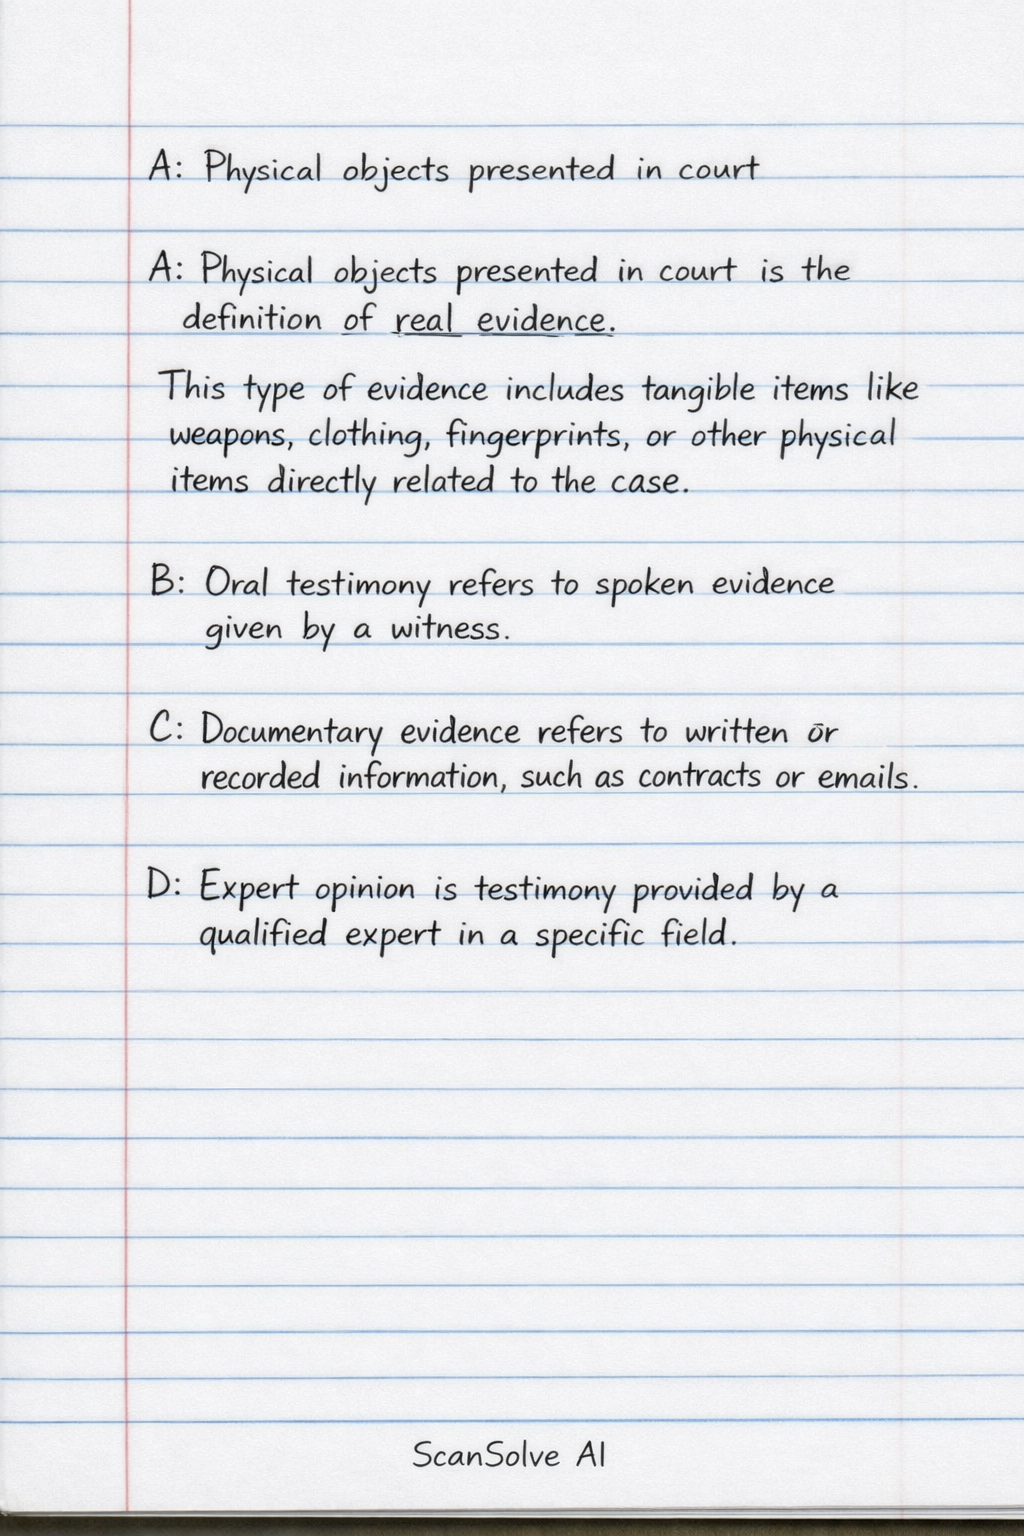 A: Physical objects presented in court
A: Physical objects presented in court is the
definition of real evidence.
This type of evidence includes tangible items like
weapons, clothing, fingerprints, or other physical
items directly related to the case.
B: Oral testimony refers to spoken evidence
given by a witness.
C: Documentary evidence refers to written or
recorded information, such as contracts or emails.
D: Expert opinion is testimony provided by a
qualified expert in a specific field.
ScanSolve AI